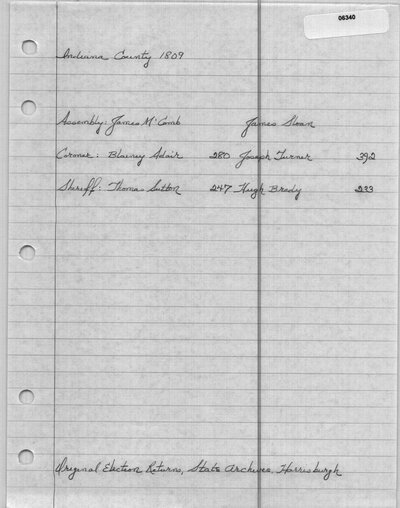 06340
Indiana County 1809
Assembly: James McComb James Sloan
Coroner: Blainey Adair 280 Joseph Turner 392
Sheriff: Thomas Sutton 247 Hugh Brady 233
Original Election Returns, State Archives, Harrisburgh